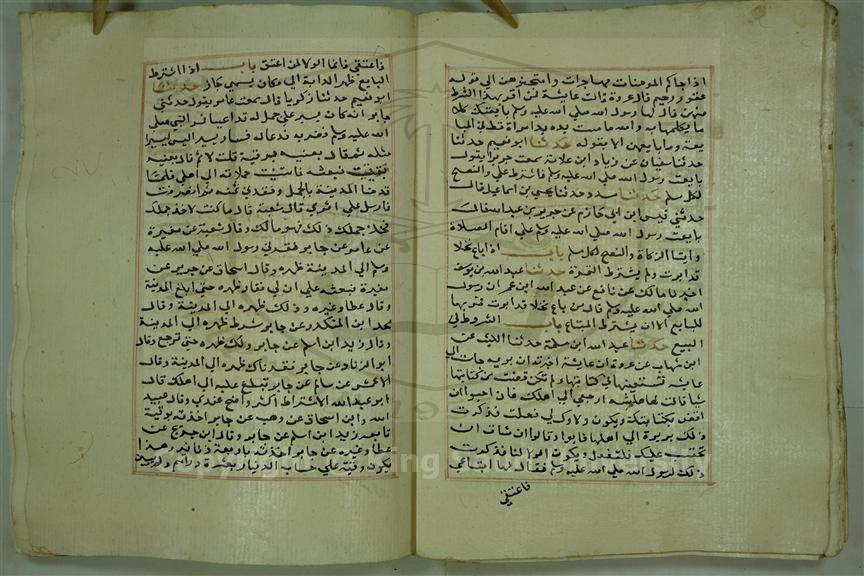 اذا جاكم المومنات مهاجرات وامتحنوهن الي قوله
غفور رحيم قال عروة قالت عايشة فمن اقر بهذا الشرط
منهن قال لها رسول الله صلي الله عليه وسلم بايعتك كلاما
ما يكلمها به والله ما مست يده يد امراة قط في المبا
يعة وما بايعهن الا بقوله حدثنا ابو نعيم حدثنا
حدثنا سفيان عن زياد ابن علاقة سمعت جريرا يقول
بايعت رسول الله صلي الله عليه وسلم فاشترط علي والنصح
لكل مسلم حدثنا مسدد حدثنا يحيي بن اسماعيل قال
حدثني قيس ابن ابي حازم عن جرير بن عبد الله قال
بايعت رسول الله صلي الله عليه وسلم علي اقام الصلاة
وايتا الزكاة والنصح لكل مسلم باب اذا باع نخلا
قد ابرت ولم يشترط الثمرة حدثنا عبد الله بن يوسف
اخبرنا مالك عن نافع عن عبد الله ابن عمر ان رسول
الله صلي الله عليه وسلم قال من باع نخلا قد ابرت فثمرتها
للبايع الا ان يشترط المبتاع باب الشروط في
البيع حدثنا عبد الله ابن مسلمة حدثنا الليث عن
ابن شهاب عن عروة ان عايشة اخبرته ان بريرة جات الي
عايشة تستعينها في كتابتها ولم تكن قضت من كتابتها
شيا قالت لها عايشة ارجعي الي اهلك فان احبوا ان
اقضي عنك كتابتك ويكون ولاوك لي فعلت فذكرت
ذلك بريرة الي اهلها فابوا وقالوا ان شات ان
تحتسب عليك فلتفعل ويكون الولا لنا فذكرت
ذلك لرسول الله صلي الله عليه وسلم فقال لها ابتاعي
فاعتقي
فاعتقي فانما الولا لمن اعتق باب اذا اشترط
البايع ظهر الدابة الي مكان يسمي جاز حدثنا
ابو نعيم حدثنا زكريا قال سمعت عامر يقول حدثني
جابر انه كان يسير علي جمل له قد اعيا فمر النبي صلي
الله عليه وسلم فضربه فدعا له فسار بسير ليس يسير
مثله ثم قال بعنيه بوقية قلت لا ثم قال بعنيه
بوقية فبعته فاستثنيت حملانه الي اهلي فلما
قدمنا المدينة بالجمل ونقدني ثمنه ثم انصرفت
فارسل علي اثري قال شعبة قال ما كنت لاخذ جملك
فخذ جملك ذلك فهو مالك وقال شعبة عن مغيرة
عن عامر عن جابر فقدني رسول الله صلي الله عليه
وسلم الي المدينة ظهره وقال اسحاق عن جرير عن
مغيرة فبعته علي ان لي فقار ظهره حتي ابلغ المدينة
وقال عطا وغيره وذلك ظهره الي المدينة وقال
محمد ابن المنكدر عن جابر شرط ظهره الي المدينة
وقال زيد ابن اسلم عن جابر ولك ظهره حتي ترجع وقال
ابو الزناد عن جابر فقدناك ظهره الي المدينة وقال
الاعمش عن سالم عن جابر تبلغ عليه الي اهلك قال
ابو عبد الله الاشتراط اكثر واصح عندي وقال عبيد
الله وابن اسحاق عن وهب عن جابر اخذته بوقية
تابعه زيد ابن اسلم عن جابر وقال ابن جريج عن
عطا وغيره عن جابر اخذته باربعة دنانير وهذا
يكون وقية علي حساب الدينار بعشرة دراهم